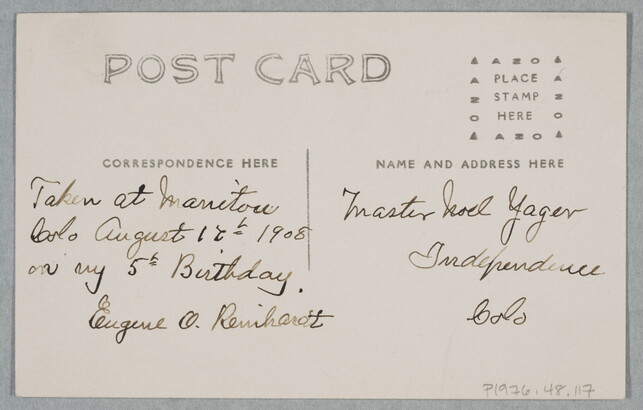 POST CARD
AZO
PLACE
STAMP
HERE
AZO
CORRESPONDENCE HERE
NAME AND ADDRESS HERE
Taken at Manitou
Colo August 12th 1908
on my 5th Birthday.
Eugene O. Reinhardt
Master Noel Yager
Independence
Colo
P1976.48.117